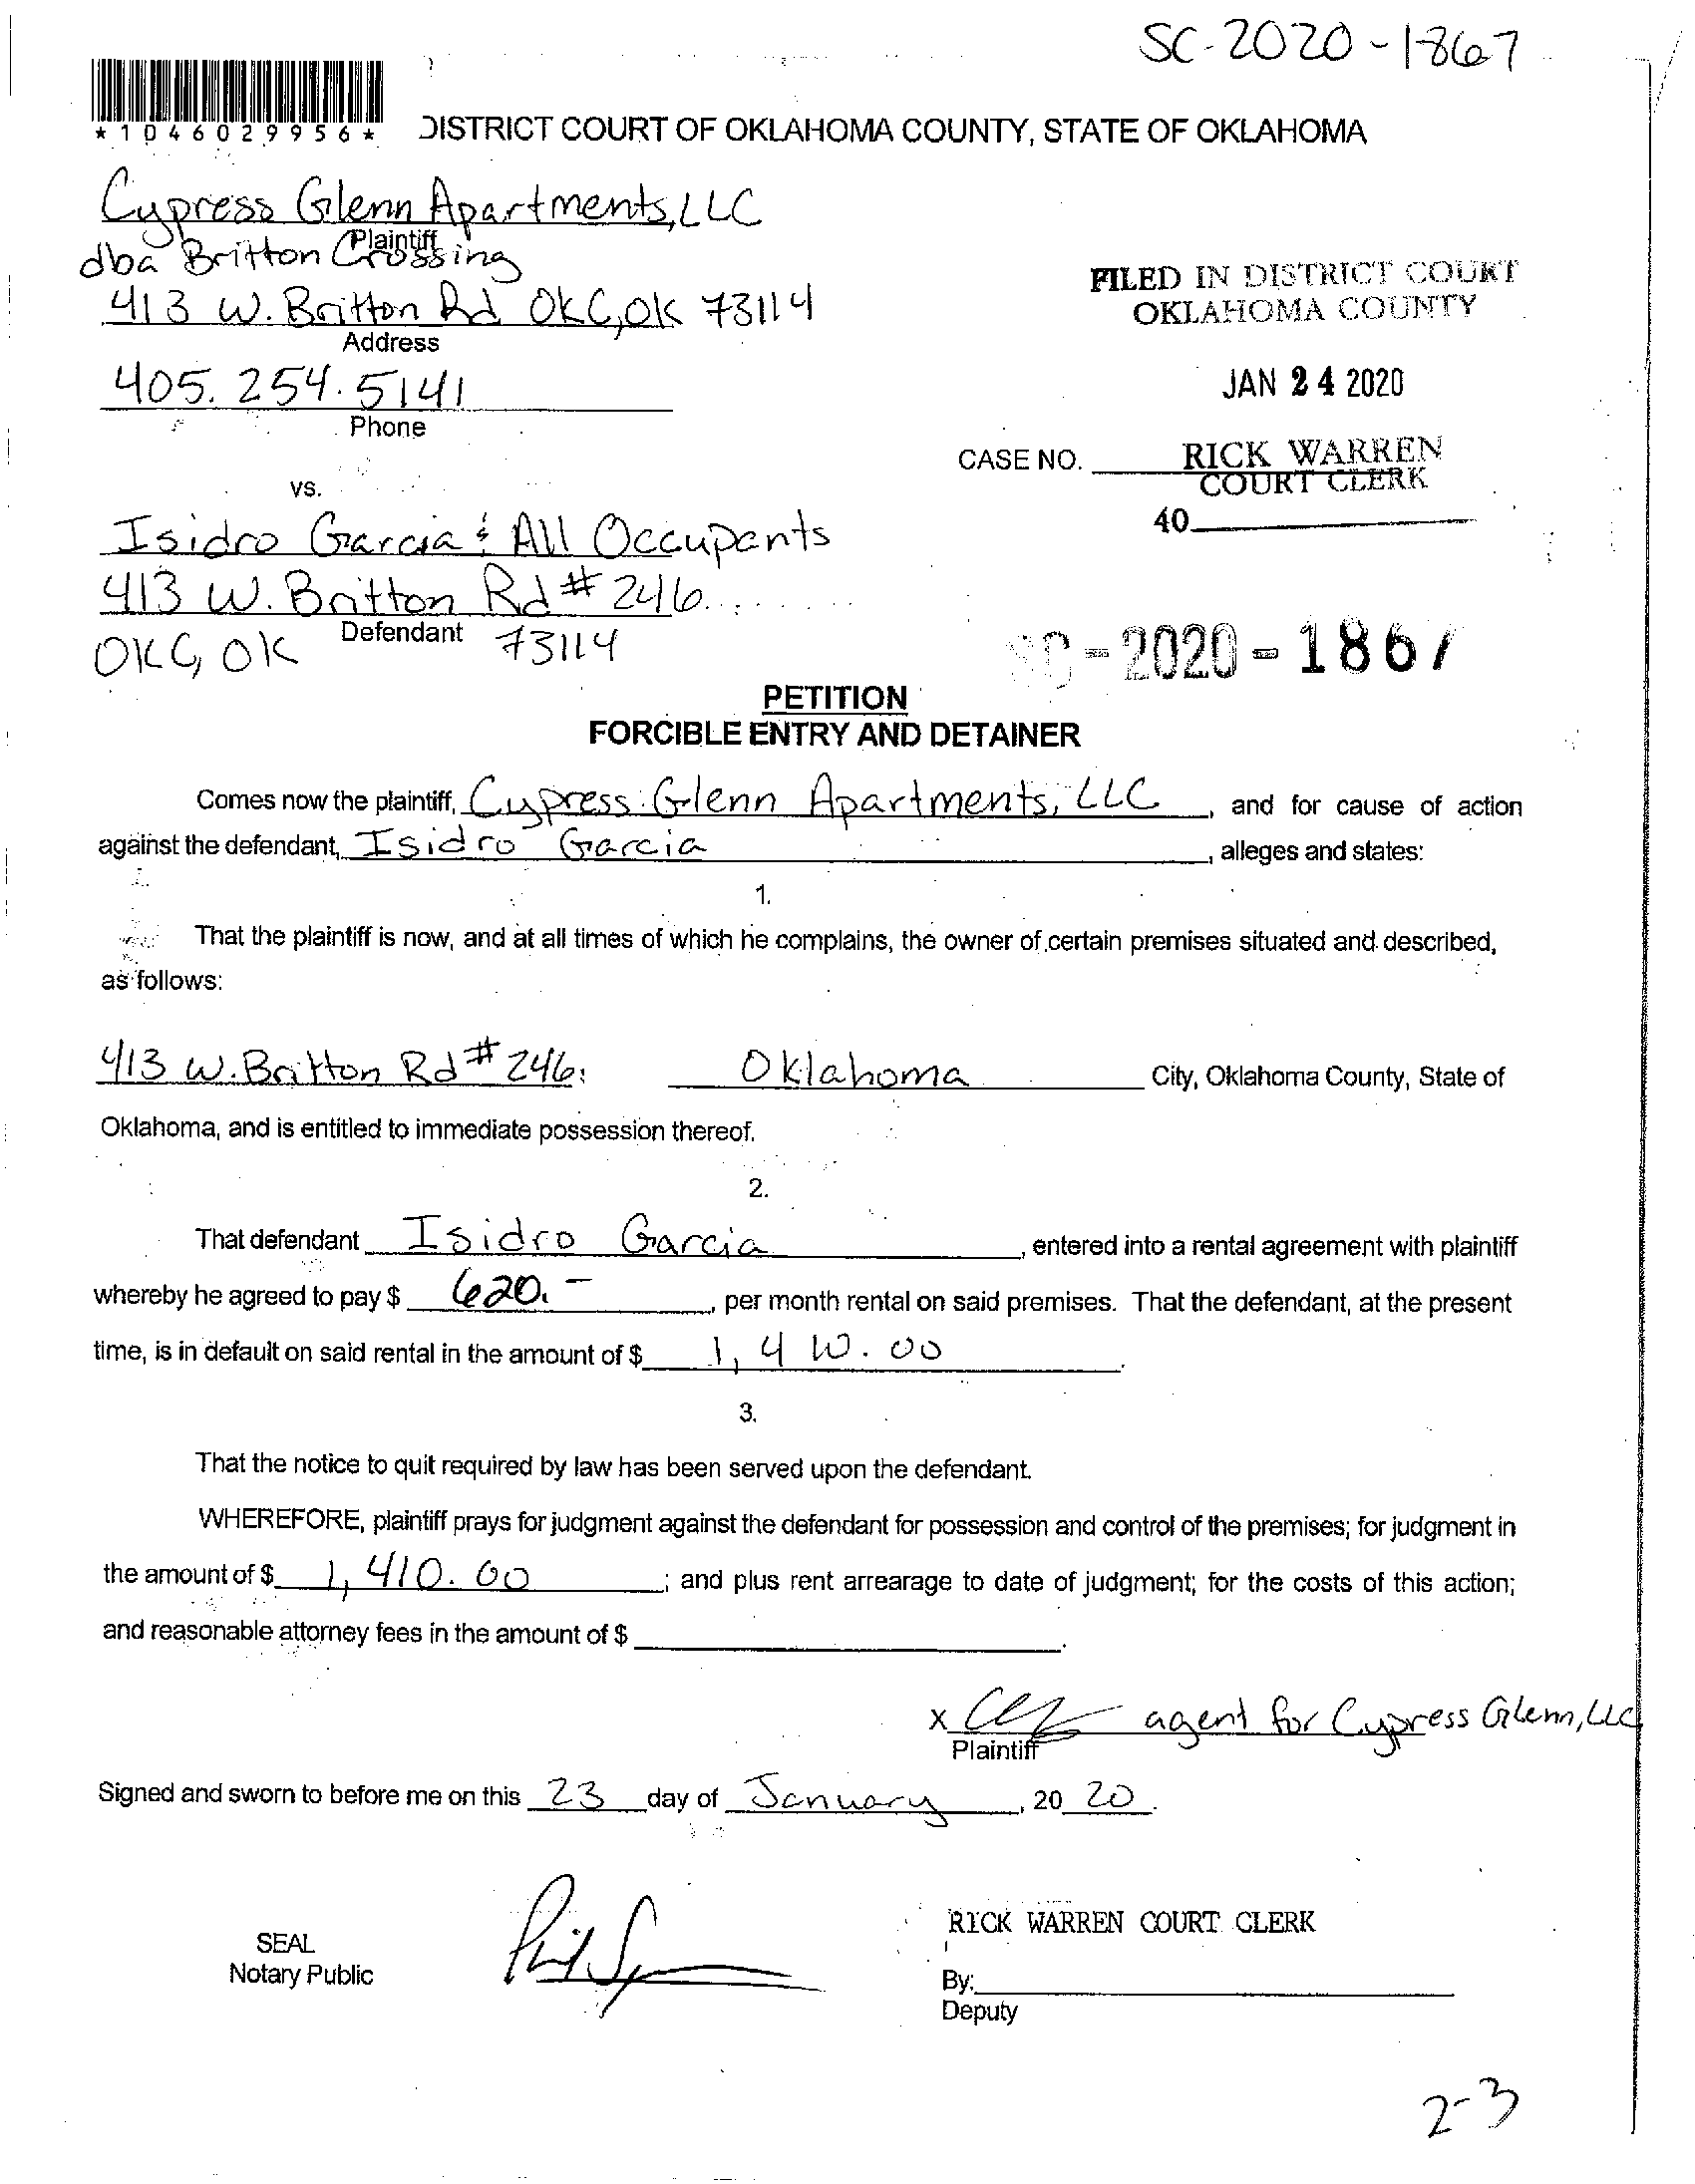 SC-2020-1867
*1046029956*
DISTRICT COURT OF OKLAHOMA COUNTY, STATE OF OKLAHOMA
Cypress Glenn Apartments, LLC
Plaintiff
dba Britton Crossing
413 W. Britton Rd OKC, OK 73114
Address
405. 254. 5141
Phone
FILED IN DISTRICT COURT
OKLAHOMA COUNTY
JAN 24 2020
CASE NO.
RICK WARREN
COURT CLERK
40
vs.
Isidro Garcia & All Occupants
413 W. Britton Rd # 246
Defendant
OKC, OK 73114
SC-2020-1867
PETITION
FORCIBLE ENTRY AND DETAINER
Comes now the plaintiff, Cypress Glenn Apartments, LLC, and for cause of action
against the defendant, Isidro Garcia, alleges and states:
1.
That the plaintiff is now, and at all times of which he complains, the owner of certain premises situated and described,
as follows:
413 W. Britton Rd # 246 Oklahoma City, Oklahoma County, State of
Oklahoma, and is entitled to immediate possession thereof.
2.
That defendant Isidro Garcia, entered into a rental agreement with plaintiff
whereby he agreed to pay $ 620.-, per month rental on said premises. That the defendant, at the present
time, is in default on said rental in the amount of $ 1,410.00.
3.
That the notice to quit required by law has been served upon the defendant.
WHEREFORE, plaintiff prays for judgment against the defendant for possession and control of the premises; for judgment in
the amount of $ 1,410.00; and plus rent arrearage to date of judgment; for the costs of this action;
and reasonable attorney fees in the amount of $.
X agent for Cypress Glenn, LLC
Plaintiff
Signed and sworn to before me on this 23 day of January, 20 20.
SEAL
Notary Public
RICK WARREN COURT CLERK
By:
Deputy
2-3